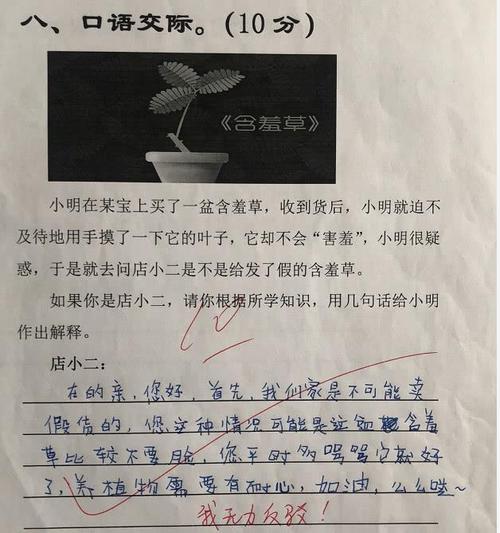 八、口语交际。(10分)
《含羞草》
小明在某宝上买了一盆含羞草，收到货后，小明就迫不
及待地用手摸了一下它的叶子，它却不会“害羞”，小明很疑
惑，于是就去问店小二是不是给发了假的含羞草。
如果你是店小二，请你根据所学知识，用几句话给小明
作出解释。
10
店小二：
在的亲，您好，首先，我们家是不可能卖
假货的，您这种情况可能是这盆含羞
草比较不要脸，您平时多骂骂它就好
了，养植物需要有耐心，加油，么么哒~
我无力反驳！